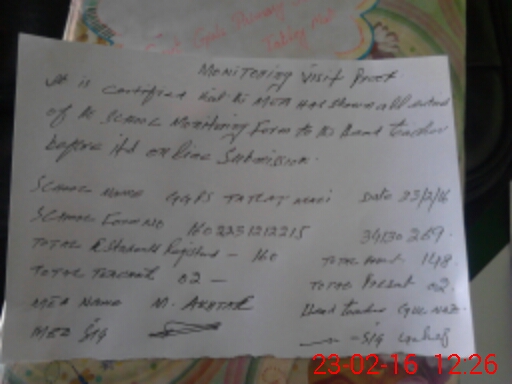 Monitoring Visit Proof
It is certified that the MEA has shown all entries
of the School Monitoring Form to the Head Teacher
before its online Submission.
School Name GGPS Date 23/2/16
School Form No 1602231212215 34130269.
Total # Students Registered - 160 Total 148.
Total Teachers 02 - Total Present 02.
MEA Name M. AKHTAR Head Teacher Gul Naz.
MEA Sig - Sig
23-02-16 12:26